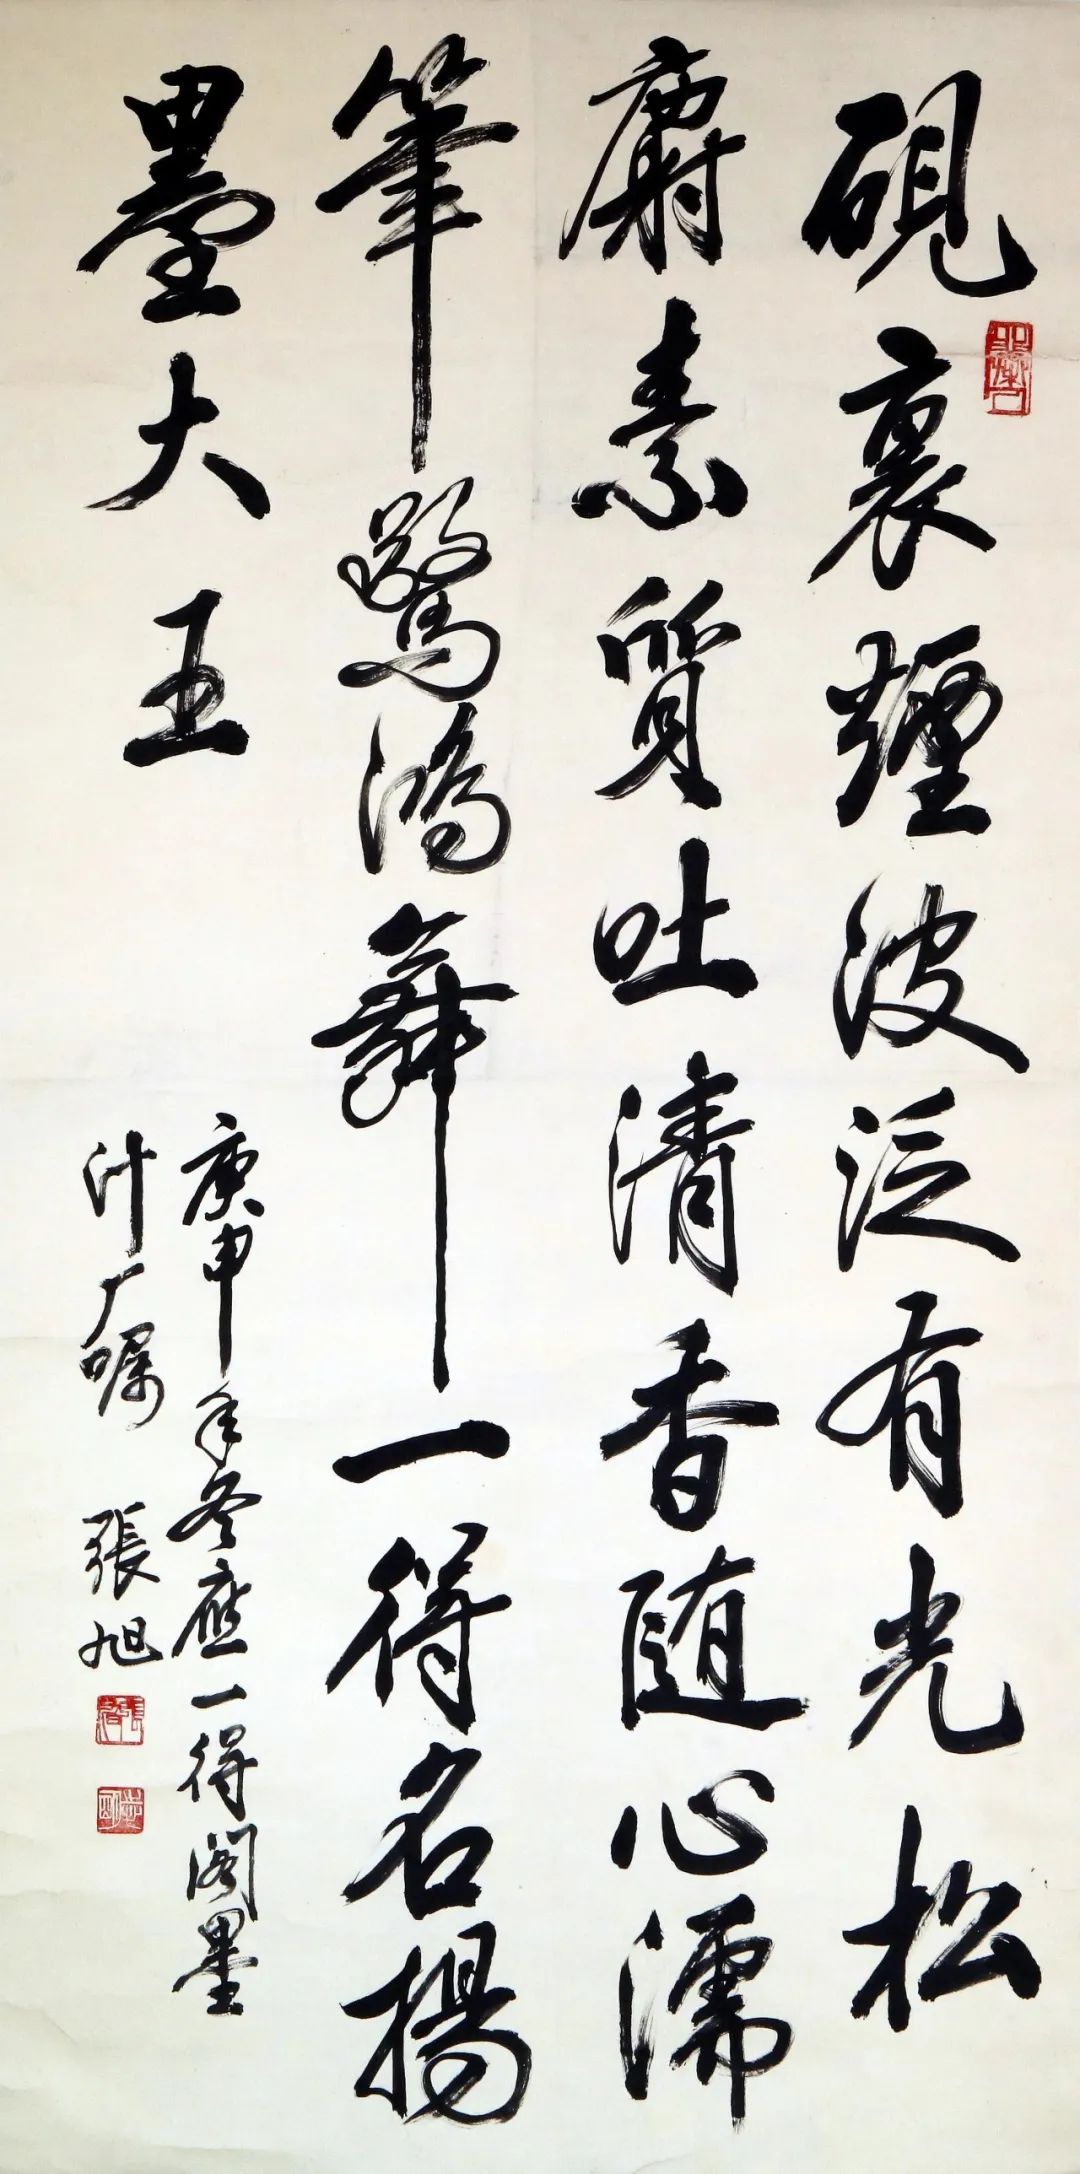 硯裏煙波泛有光松
麝素質吐清香随心濡
筆驚鴻舞一得名揚
墨大王
庚申年冬應一得阁墨
汁厂嘱 張旭